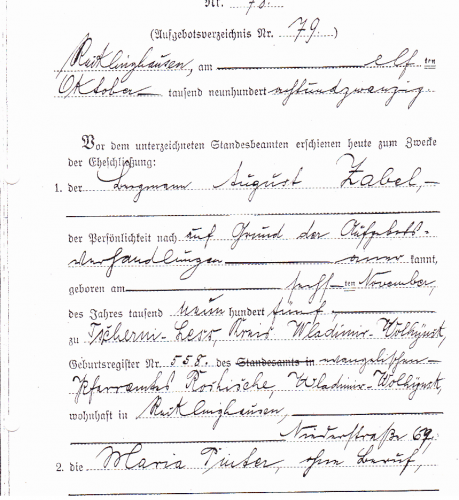 Nr. 78.
(Aufgebotsverzeichnis Nr. 79.)
Recklinghausen, am elf ten
Oktober tausend neunhundert achtundzwanzig.
Vor dem unterzeichneten Standesbeamten erschienen heute zum Zwecke
der Eheschließung:
1. der Bergmann August Zabel,
der Persönlichkeit nach auf Grund der Aufgebots-
verhandlungen aner kannt,
geboren am sechs ten November,
des Jahres tausend neun hundert fünf,
zu Kreis Wladimir-Wolhynsk,
Geburtsregister Nr. 558. des Standesamts in evangelischen
Pfarramtes Roshische, Wladimir-Wolhynsk,
wohnhaft in Recklinghausen,
Niederstraße 69,
2. die Maria Pinter, ohne Beruf,